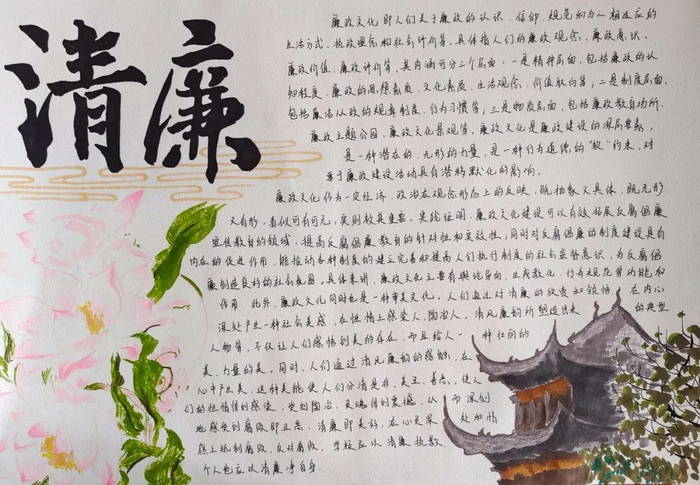 清廉
廉政文化即人们关于廉政的认识、信仰、规范和与之相适应的
生活方式、执政理念和社会评价等，具体指人们的廉政观念、廉政意识、
廉政价值、廉政评价等，其内涵可分三个层面：一是精神层面，包括廉政的认
知程度、廉政的思想素质、文化素质、生活观念、价值取向等；二是制度层面，
包括廉洁从政的规章制度、行为习惯等；三是物质层面，包括廉政教育场所、
廉政主题公园、廉政文化景观等。廉政文化是廉政建设的深层要素，
是一种潜在的、无形的力量，是一种行为道德的“软”约束，对
于廉政建设活动具有潜移默化的影响。
廉政文化作为一定经济、政治在观念形态上的反映，既抽象又具体，既无形
又有形，看似可有可无，实则极其重要。实践证明，廉政文化建设可以有效拓展反腐倡廉
宣传教育的领域，提高反腐倡廉教育的针对性和实效性，同时对反腐倡廉的制度建设具有
内在的促进作用，能推动各种制度的建立完善和提高人们执行制度的社会监督意识，为反腐倡
廉创造良好的社会氛围。具体来讲，廉政文化主要有舆论导向、生成教化、行为规范等功能和
作用。此外，廉政文化同时也是一种审美文化。人们通过对清廉的欣赏和领悟，在内心
深处产生一种社会美感，在性情上感染人、陶冶人。清风廉韵所塑造出来的典型
人物等，不仅让人们感悟到美的存在，而且给人一种壮丽的
美、力量的美。同时，人们通过清风廉韵的感触，在
心中产生美。这种美能使人们分清是非、美丑、善恶，使人
们的性情得到感染，受到陶冶，灵魂得到震撼，从而深刻
地感受到腐败即丑恶，清廉即美好，在心灵深处和情
感上抵制腐败，反对腐败，
个人也应以清廉净自身。